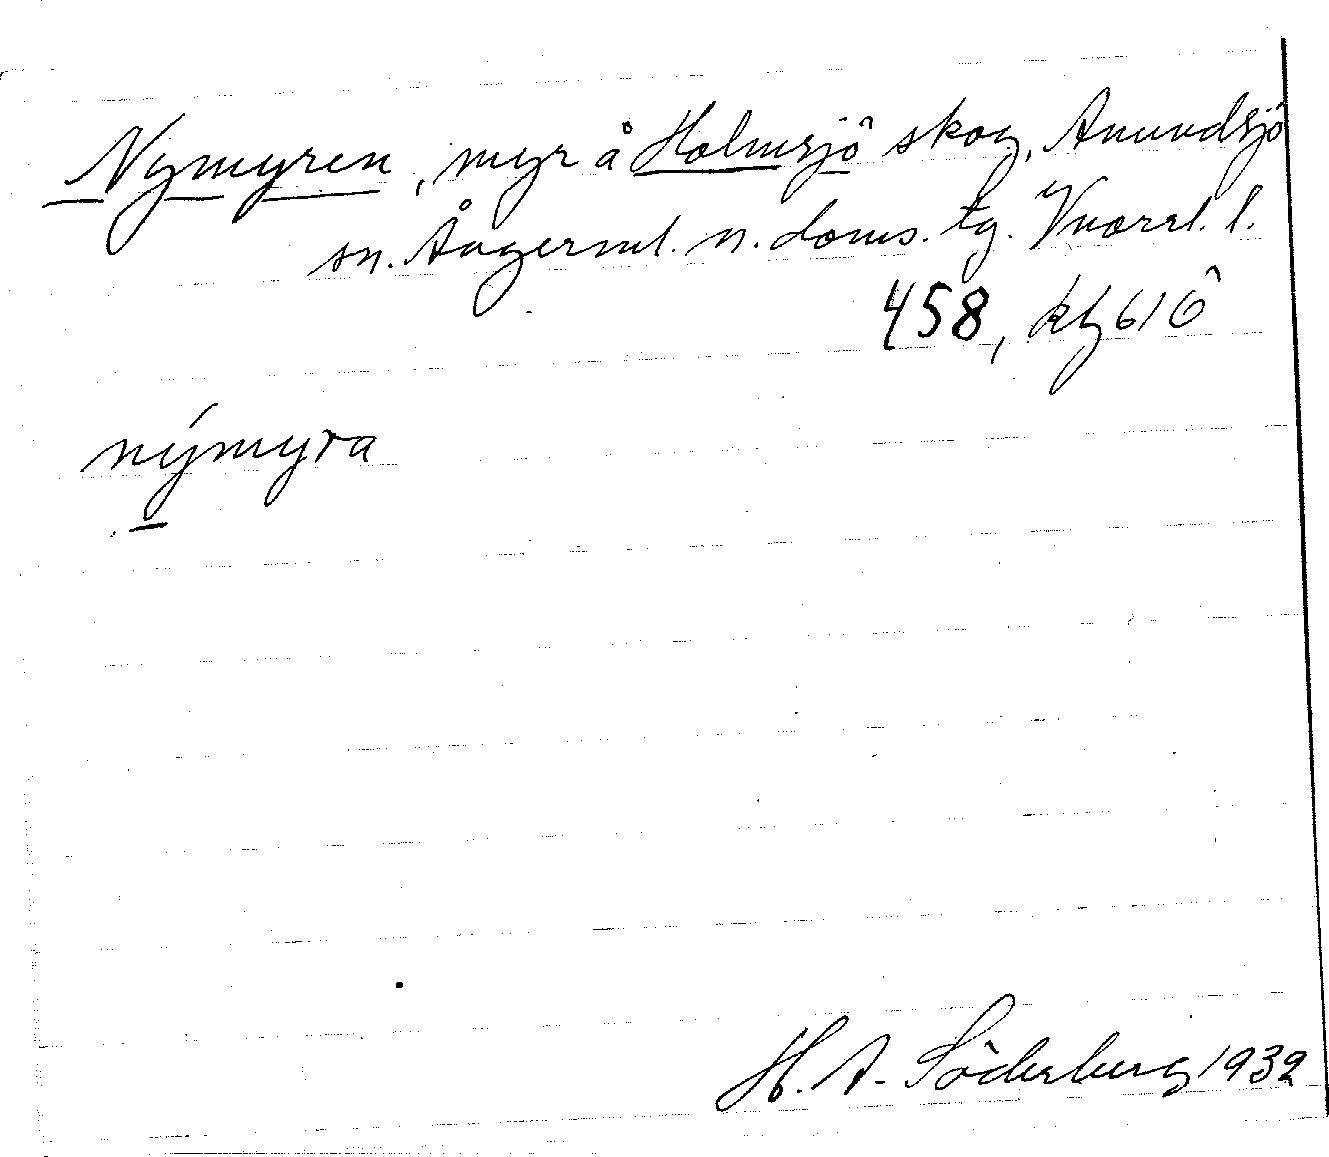 Nymyren, myr å Holmsjö skog, Anundsjö
sn. Ångerml. n. doms. tg. Vnorrl. l.
458, kbl 61 Ö
nýmyra
H. A. Söderberg 1932